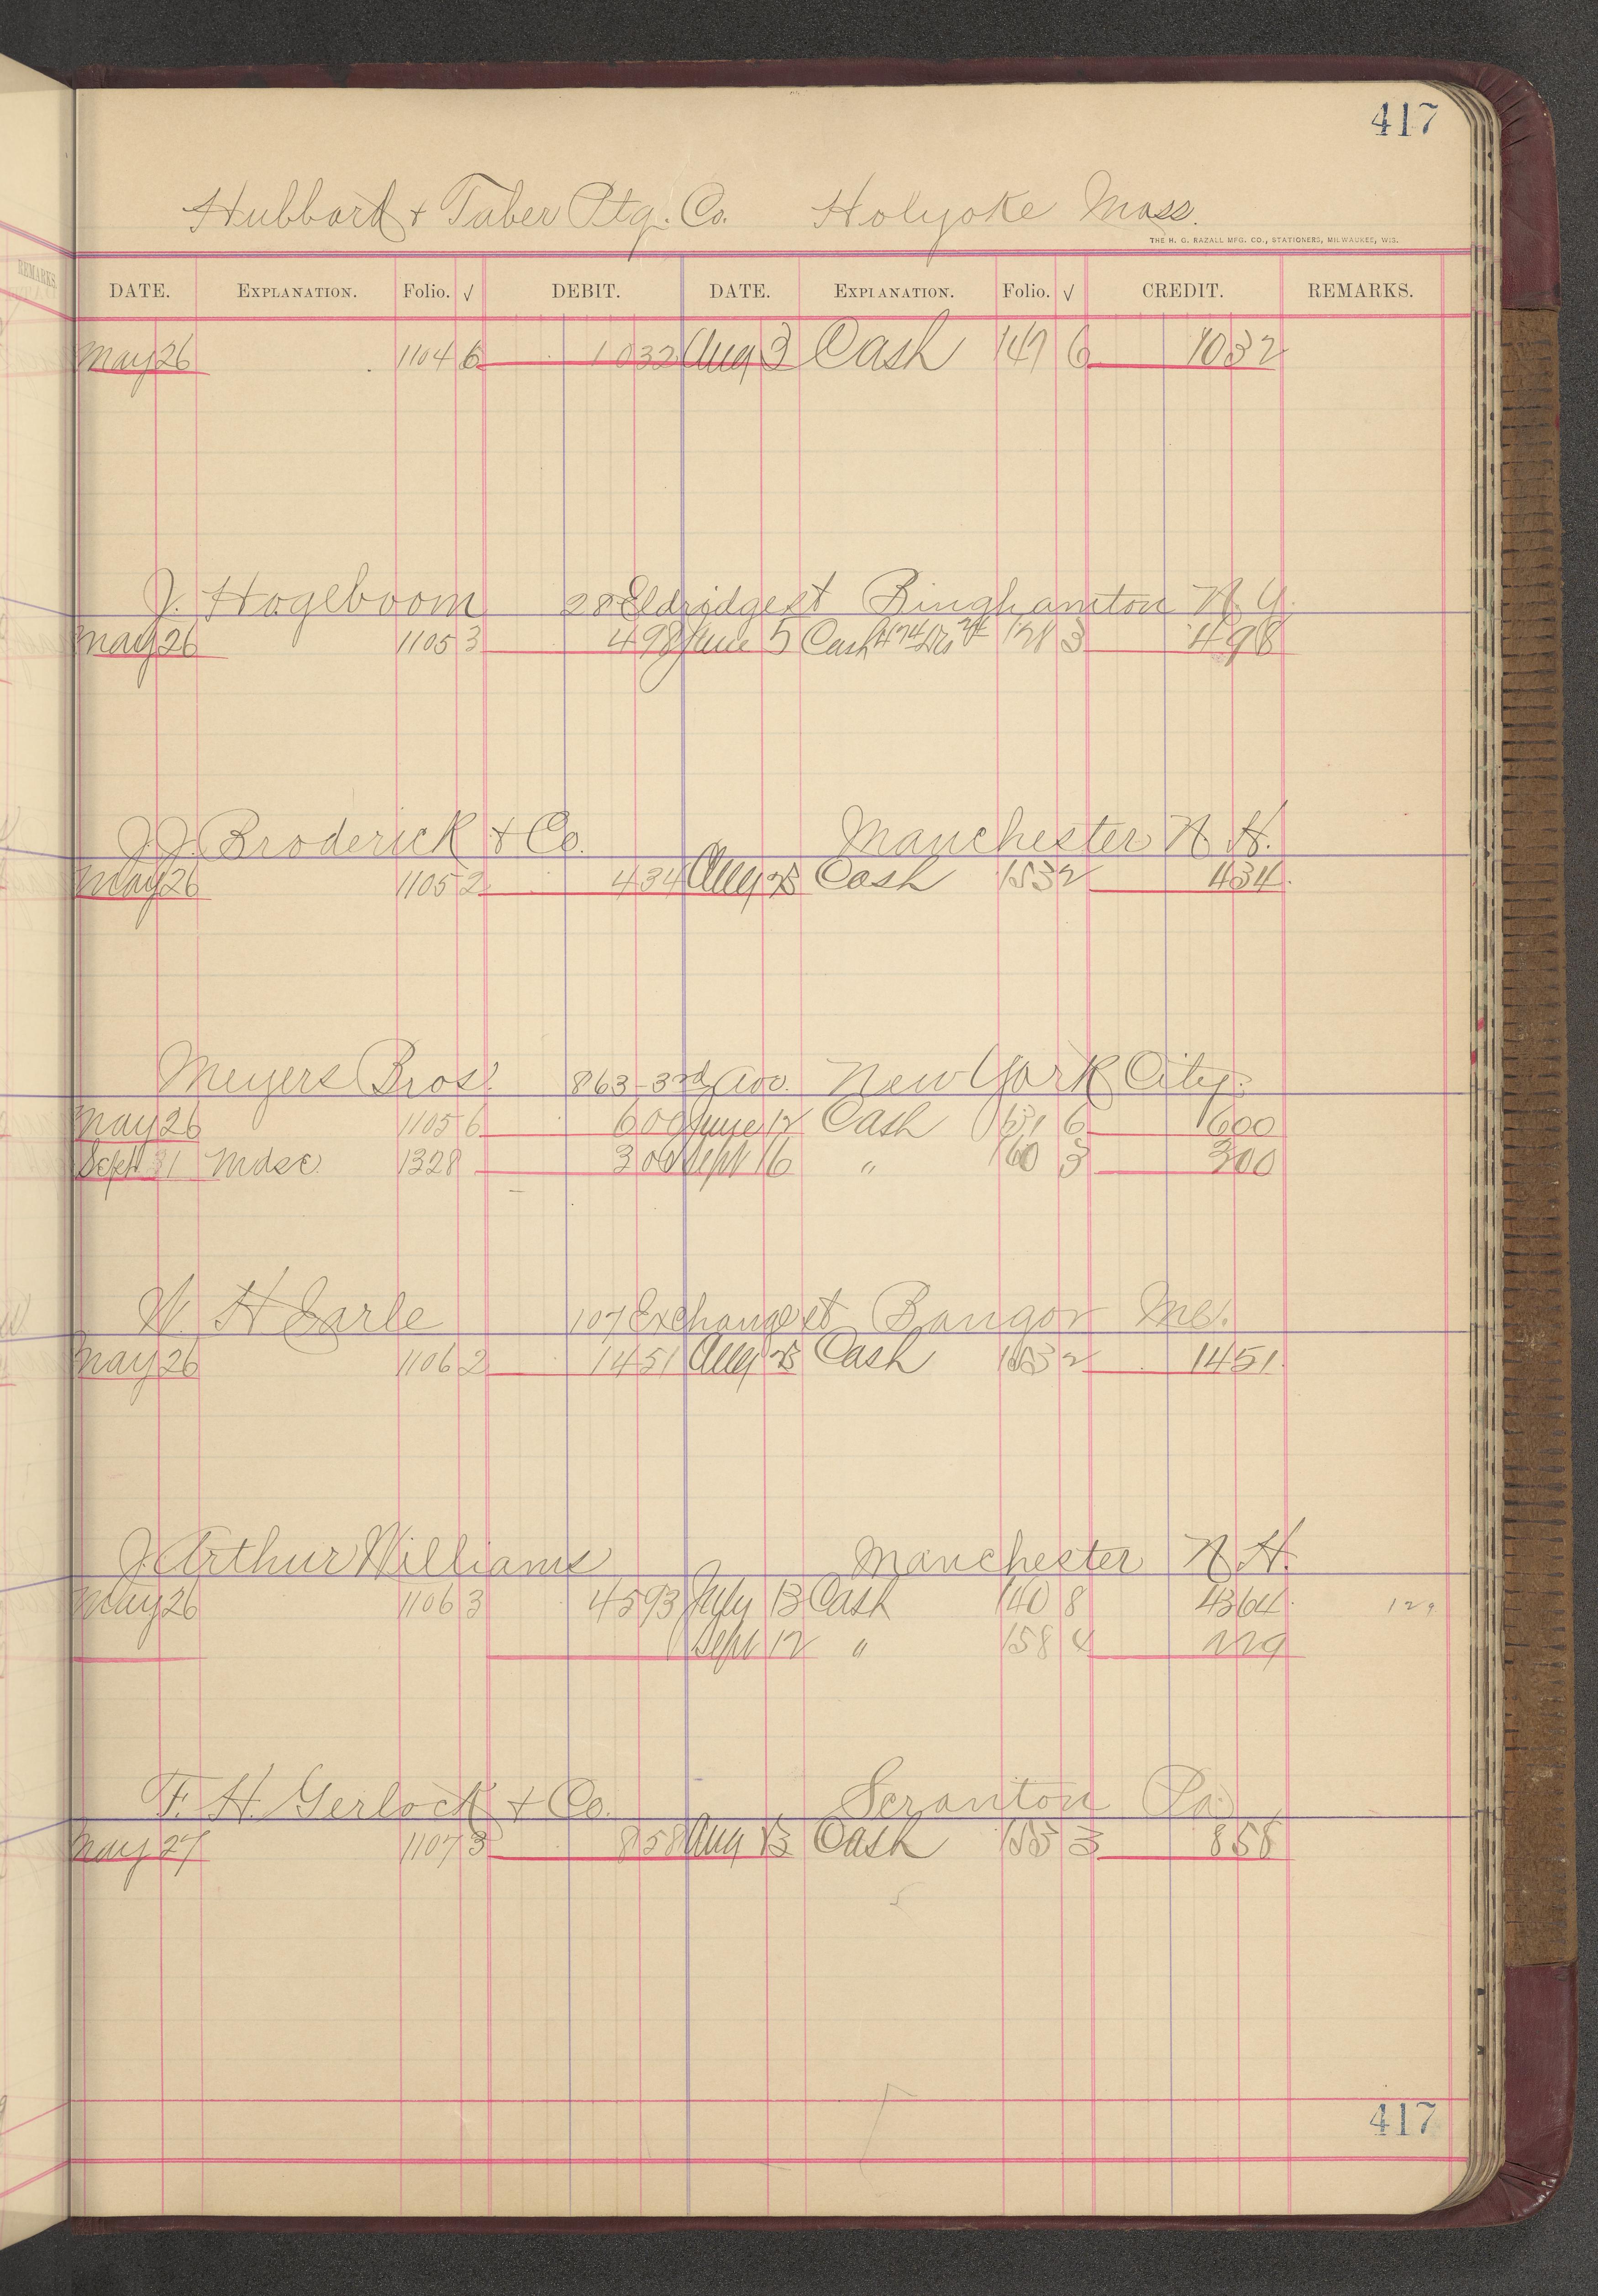 417
Hubbard & Taber Ptg. Co. Holyoke Mass.
THE H. G. RAZALL MFG. CO., STATIONERS, MILWAUKEE, WIS.
DATE. EXPLANATION. Folio. √ DEBIT. DATE. EXPLANATION. Folio. √ CREDIT. REMARKS.
May 26 1104 6 1032 Aug 3 Cash 147 6 1032
J. Hogeboom 28 Eldridge st Binghamton N.Y.
May 26 1105 3 498 June 5 Cash 128 3 498
J.J. Broderick & Co. Manchester N.H.
May 26 1105 2 434 Aug 25 Cash 153 2 434
Meyers Bros. 863-3rd Ave. New York City.
May 26 1105 6 600 June 12 Cash 131 6 600
Sept Mdse. 1328 300 Sept 16 " 160 3 300
W. H Earle 107 Exchange st Bangor Me.
May 26 1106 2 1451 Aug 25 Cash 153 2 1451
J. Arthur Williams Manchester N.H.
May 26 1106 3 4593 July 13 Cash 140 8 4364 129
Sept 12 " 158 4 229
F. H. Gerlock & Co. Scranton Pa.
May 27 1107 3 858 Aug 13 Cash 3 858
417